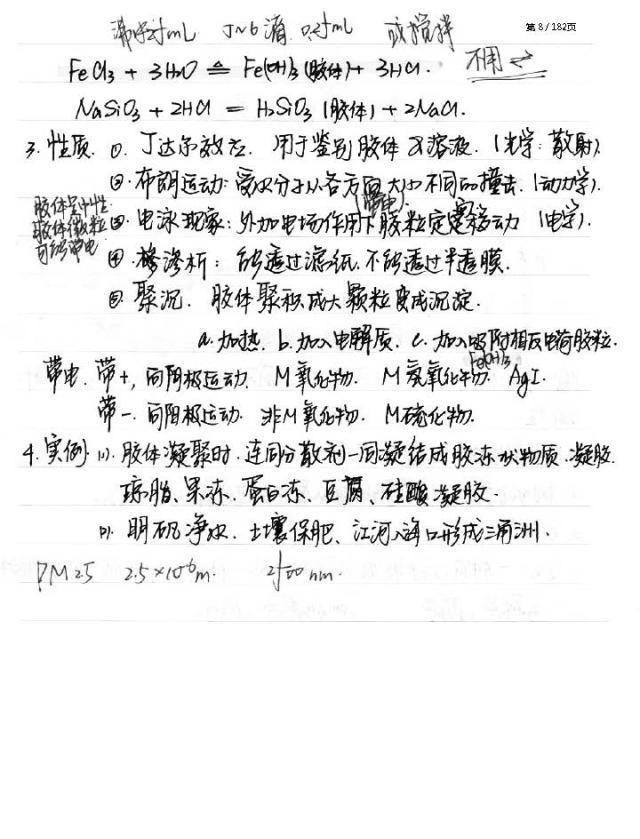 第 8 / 182页
沸水25mL 5~6滴 0.25mL 或搅拌
FeCl₃ + 3H₂O ≜ Fe(OH)₃(胶体) + 3HCl. 不用 ⇌
NaSiO₃ + 2HCl = H₂SiO₃(胶体) + 2NaCl.
3. 性质. ①. 丁达尔效应. 用于鉴别胶体及溶液. (光学: 散射).
②. 布朗运动: 受水分子从各方面大小不同的撞击. (动力学).
胶体呈中性
胶体微粒
可能带电
(带电)
③. 电泳现象: 外加电场作用下胶粒定向移动 (电学).
④. 渗析: 能透过滤纸, 不能透过半透膜.
⑤. 聚沉. 胶体聚积成大颗粒变成沉淀.
a. 加热. b. 加入电解质. c. 加入吸附相反电荷胶粒.
Fe(OH)₃
带电. 带+, 向阴极运动. M氧化物. M氢氧化物. AgI.
带-. 向阳极运动. 非M氧化物. M硫化物.
4. 实例. (1). 胶体凝聚时. 连同分散剂一同凝结成胶冻状物质. 凝胶.
琼脂、果冻、蛋白冻、豆腐、硅酸凝胶.
(2). 明矾净水. 土壤保肥、江河入海口形成三角洲.
PM2.5 2.5×10⁻⁶m. 2500 nm.